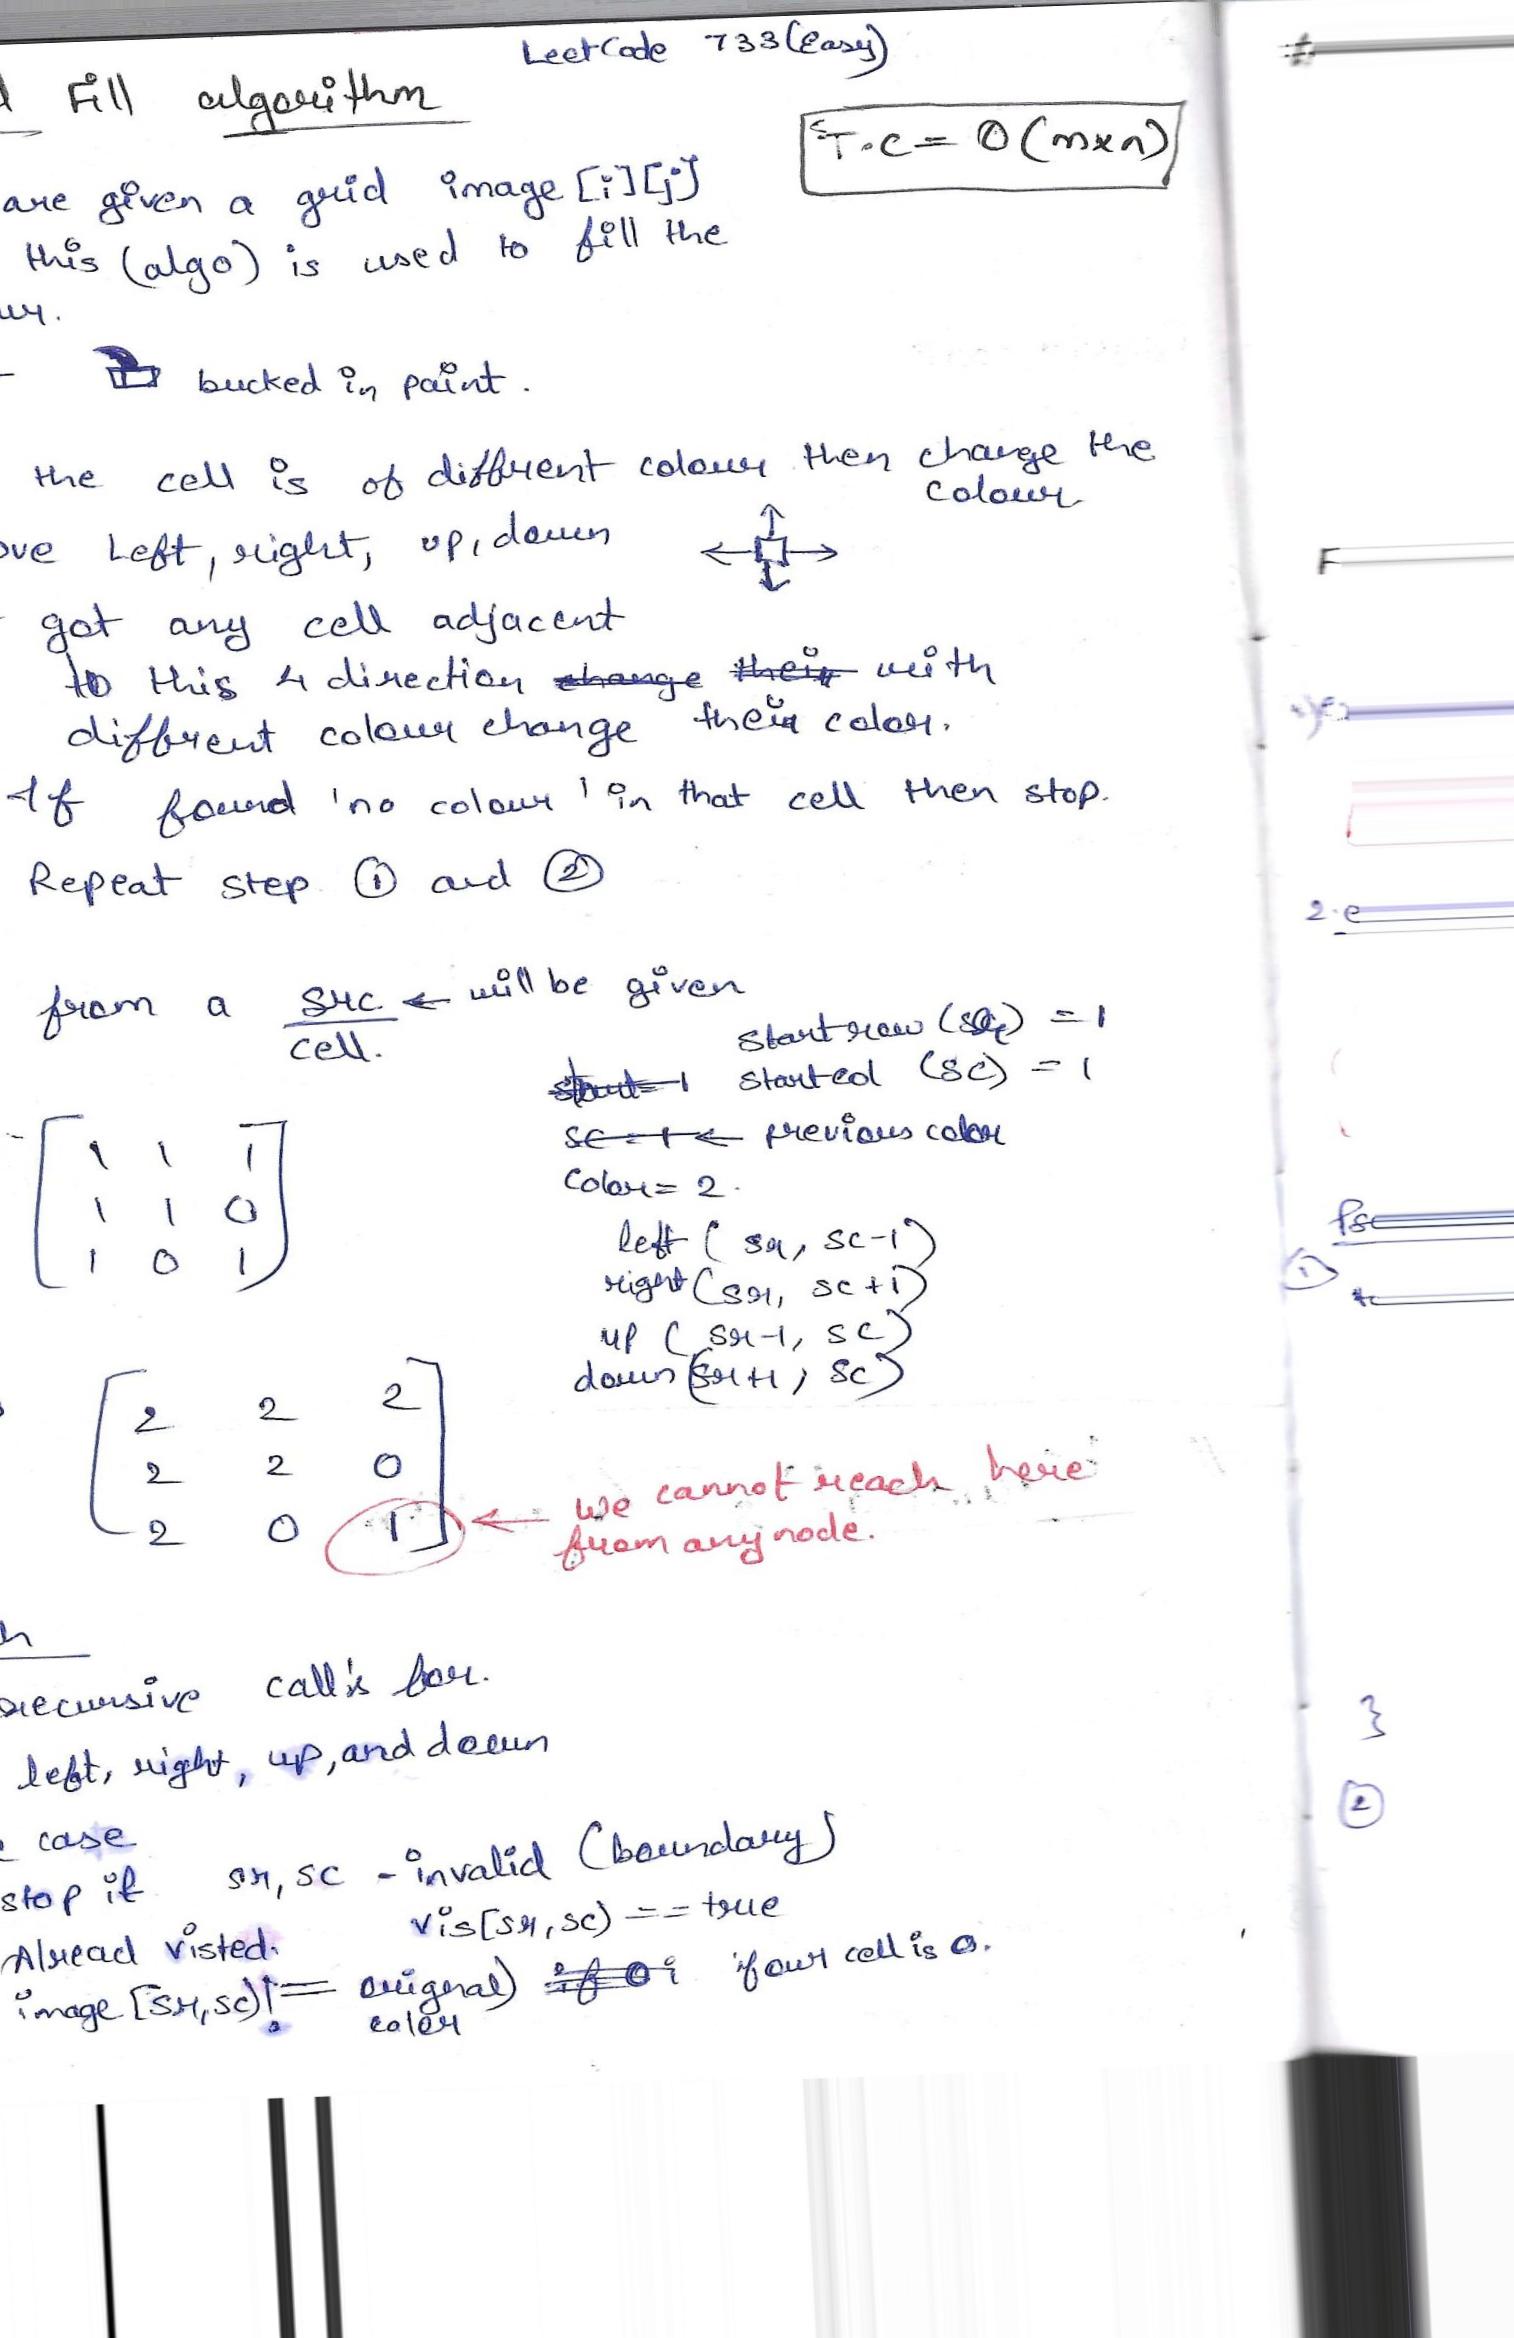 LeetCode 733 (Easy)
Fill algorithm
T.C = O(m×n)
are given a grid image [i][j]
this (algo) is used to fill the
bucked in paint.
the cell is of different colour then change the
colour
Left, right, up, down
got any cell adjacent
to this 4 direction change their with
different colour change their color.
If found 'no colour' in that cell then stop.
Repeat step ① and ②
from a src ← will be given
cell.
start row (sr) = 1
start=1 start col (sc) = 1
sc = 1 ← previous color
Color = 2.
1 1 1
1 1 0
1 0 1
left (sr, sc-1)
right (sr, sc+1)
up (sr-1, sc)
down (sr+1, sc)
2 2 2
2 2 0
2 0 1
← we cannot reach here
from any node.
recursive call's for.
left, right, up, and down
case
stop if sr, sc - invalid (boundary)
Alread visted. vis[sr, sc) == true
image [sr, sc) != original) if 0 if our cell is 0.
color
F
2.e
①
}
②